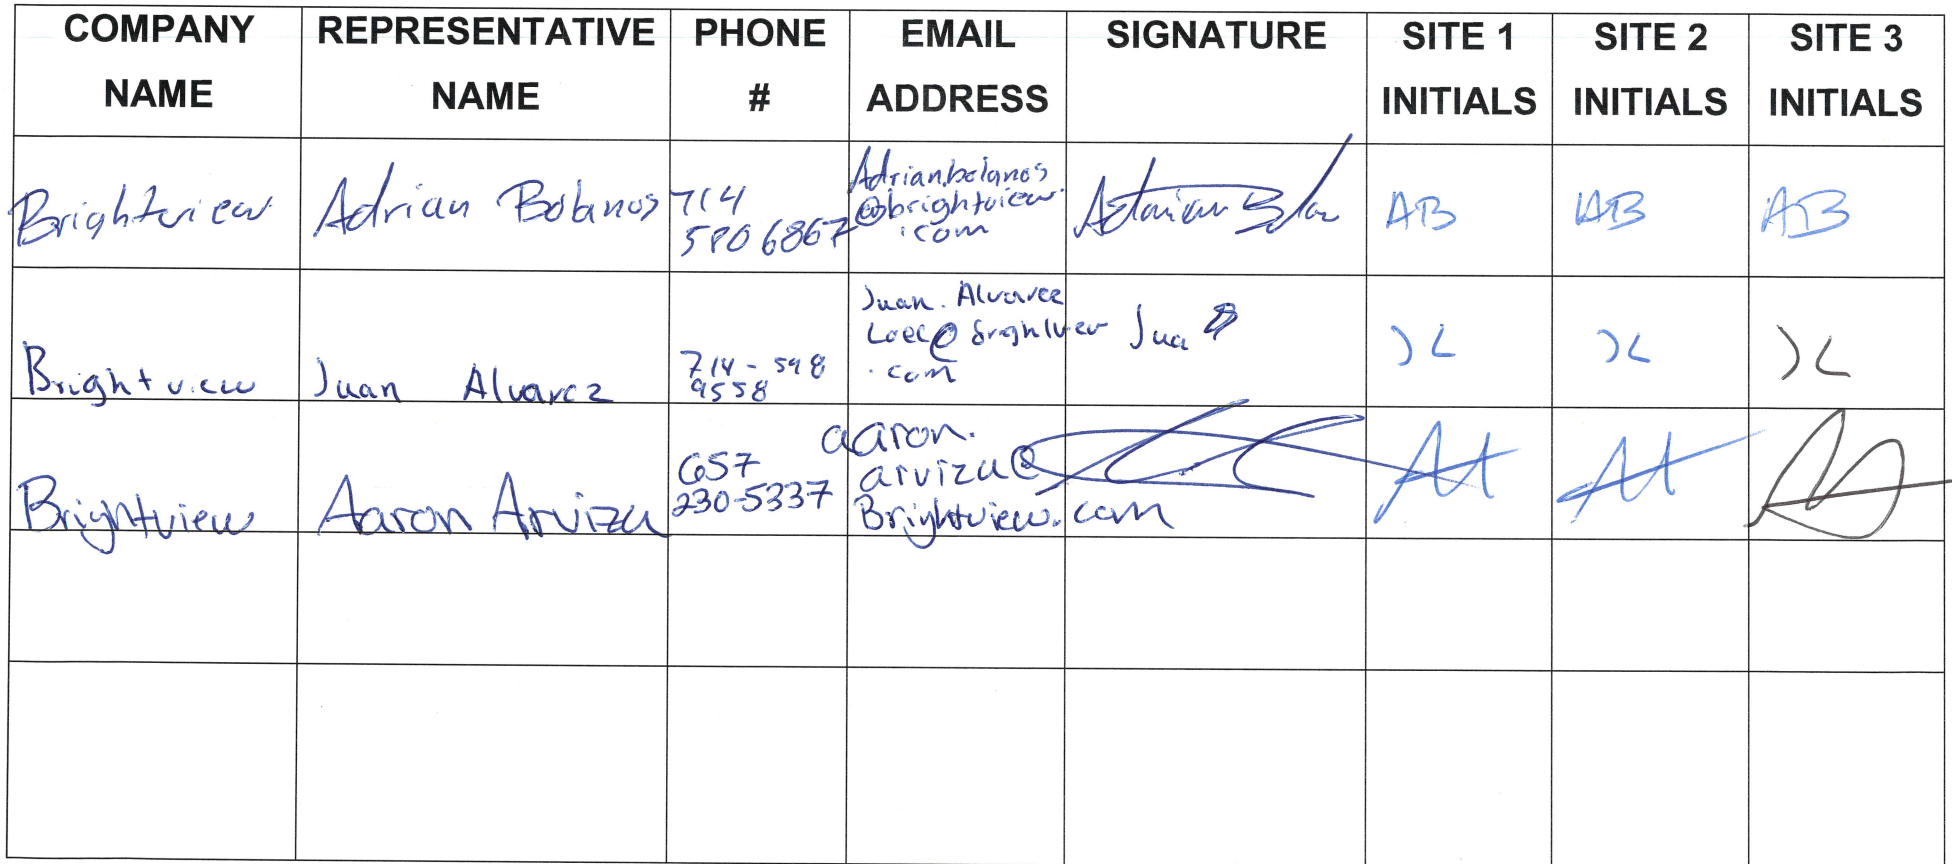 COMPANY NAME REPRESENTATIVE NAME PHONE # EMAIL ADDRESS SIGNATURE SITE 1 INITIALS SITE 2 INITIALS SITE 3 INITIALS
Brightview Adrian Bolanos 714 Adrian.bolanos @brightview .com AB AB AB
Brightview Juan Alvarez 714-598 9558 Juan. Alvarez .com Jua
Brightview Aaron Arvizu 657 230-5337 aaron. arvizu@ Brightview.com